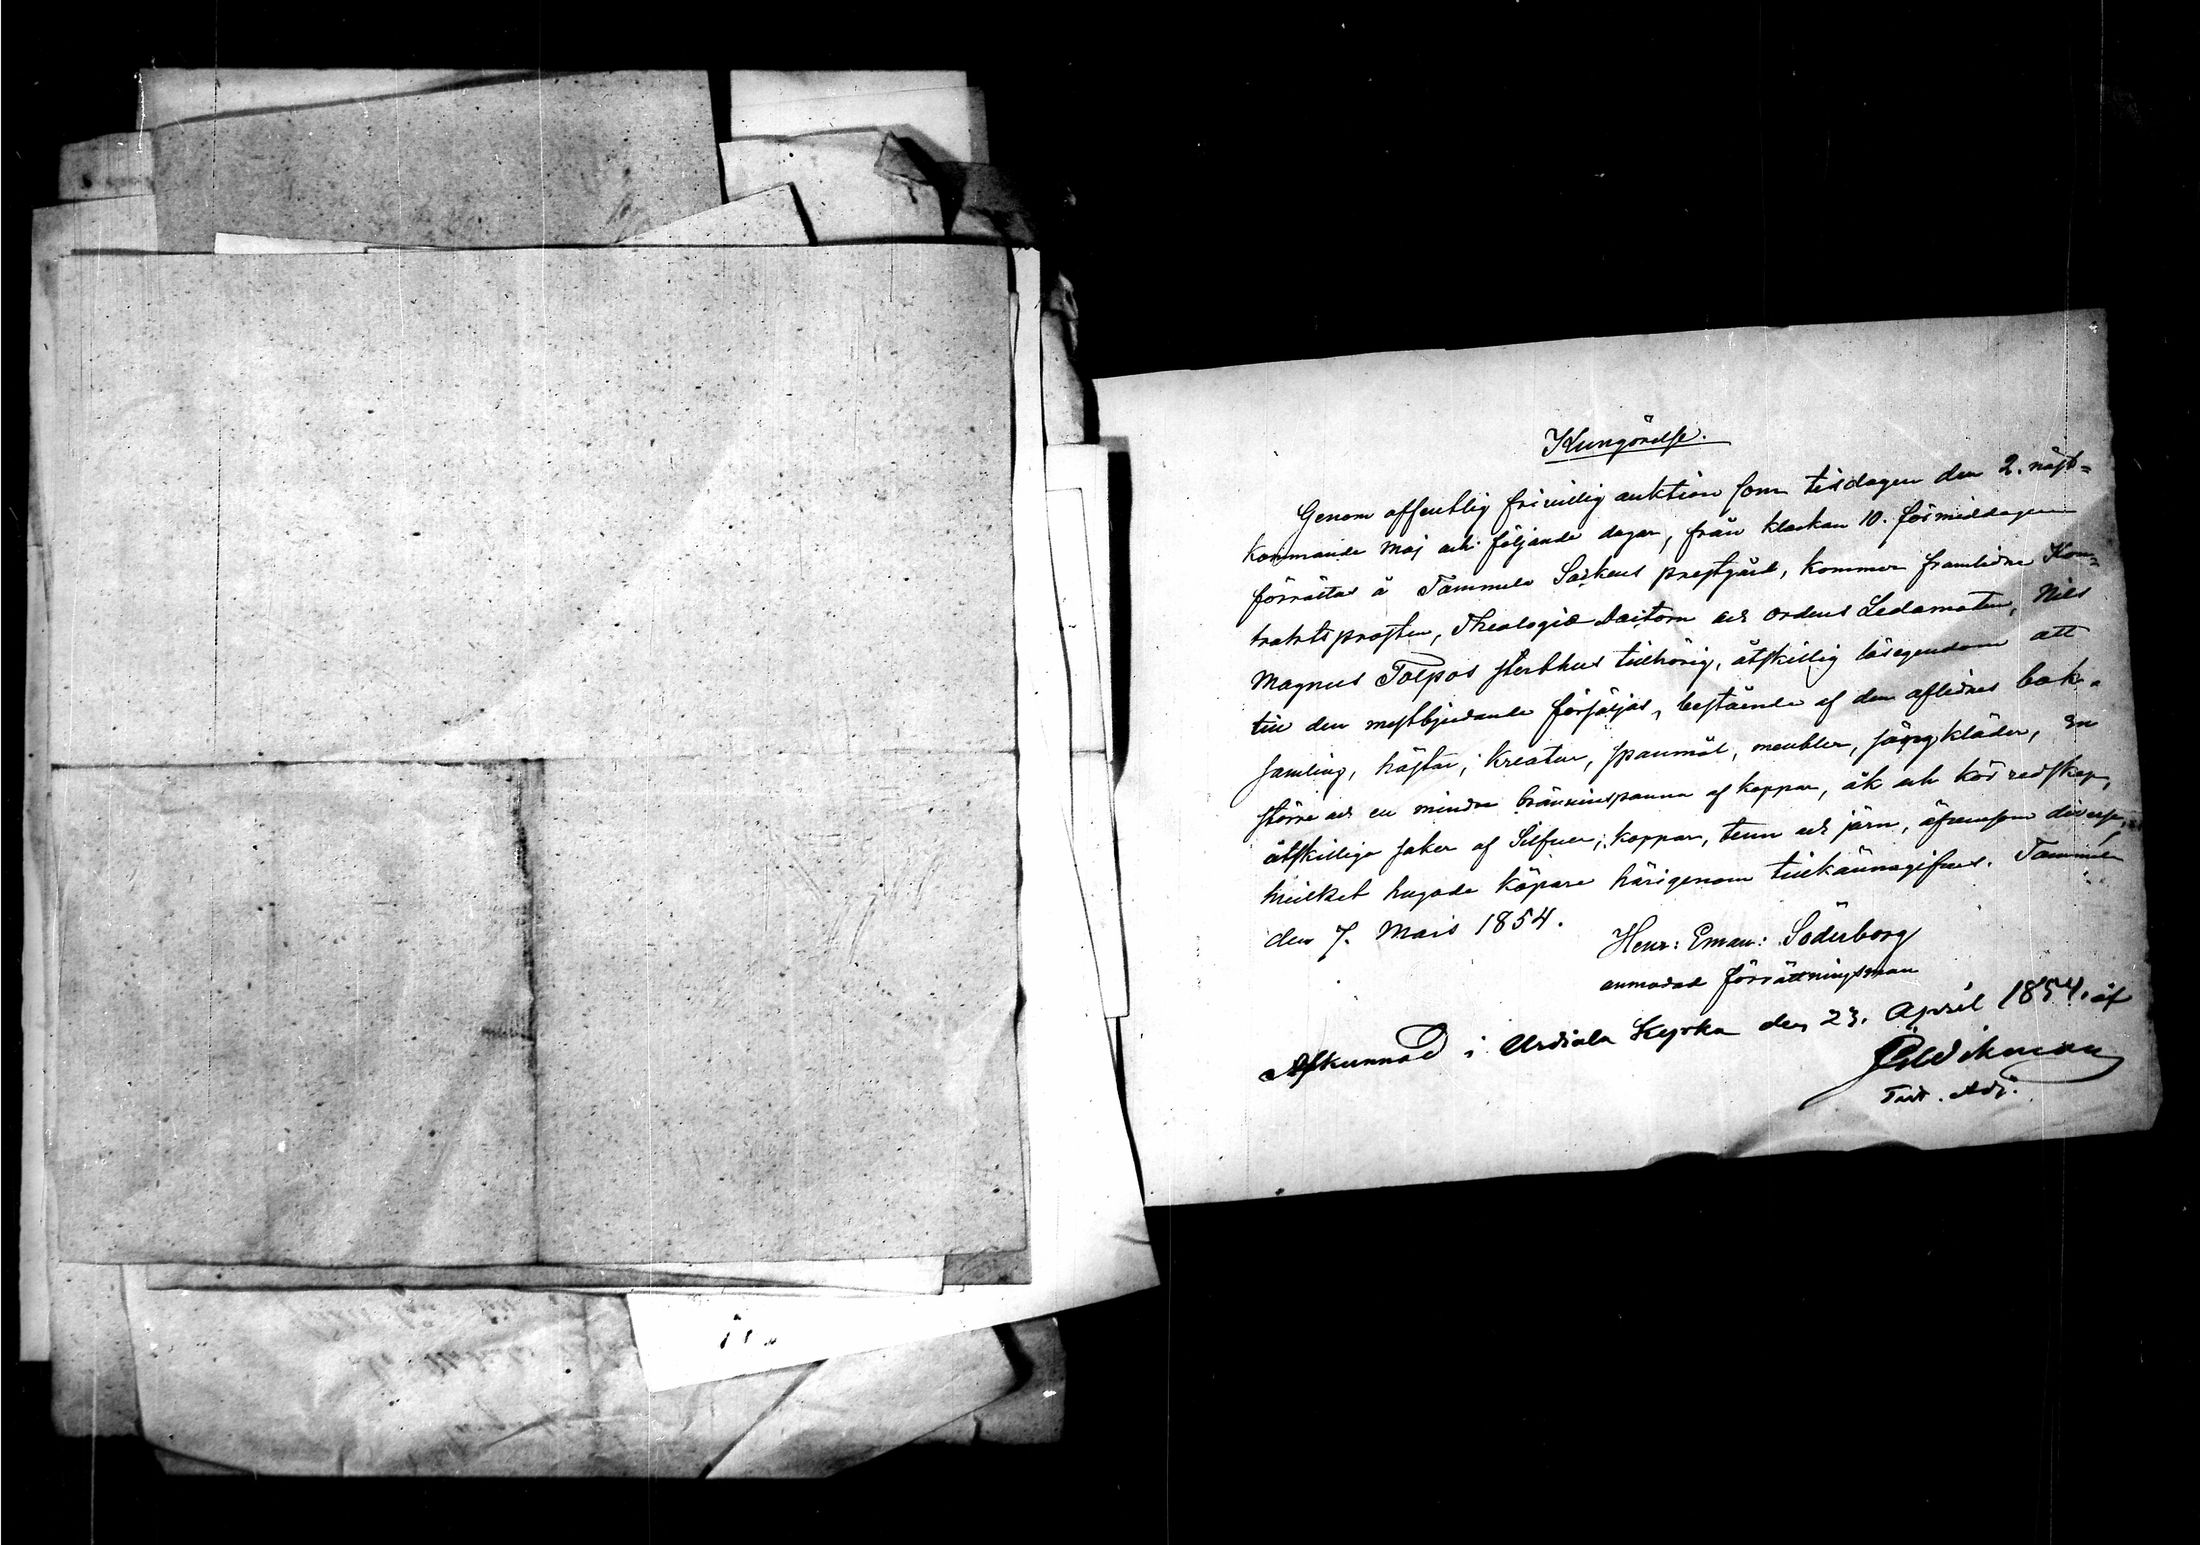 Kungörelse.
Genom offentlig frivillig auktion som tisdagen den 2. näst-
kommande Maj och följande dagar, från klockan 10. förmiddagen
förrättas å Tammela Sockens prestgård, kommer framlidne Kon-
traktsprosten, Theologiæ Doctorn och Ordens Ledamoten, Nils
Magnus Tolpos sterbhus tillhörig, åtskillig lösegendom att
till den mestbjudande försäljas, bestående af den aflidnes bok-
samling, hästar, kreatur, spanmål, meubler, sängkläder, en
större och en mindre brännvinspanna af koppar, åk och kör redskap,
åtskilliga saker af Silfver, koppar, tenn och järn, äfvensom diverse,
hvilket hugade köpare härigenom tillkännagifves. Tammela
den 7. Mars 1854.
Henr: Eman: Söderborg
anmodad förrättningsman
Afkunnad i Urdiala Kyrka den 23. April 1854. af
Wikman
Past. Adj.